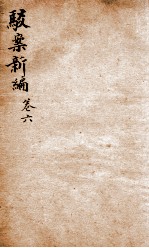 駁案新編
卷六